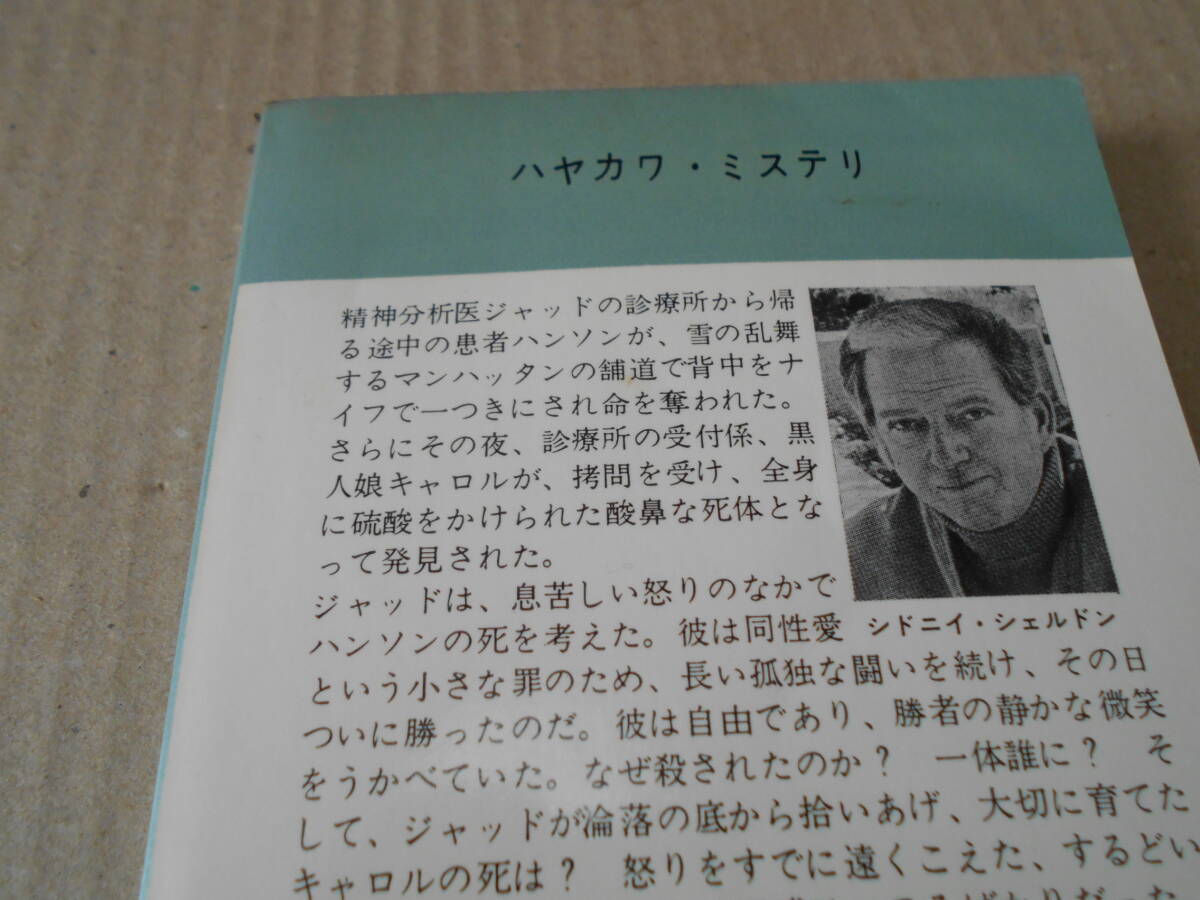 ハヤカワ・ミステリ
精神分析医ジャッドの診療所から帰
る途中の患者ハンソンが、雪の乱舞
するマンハッタンの舗道で背中をナ
イフで一つきにされ命を奪われた。
さらにその夜、診療所の受付係、黒
人娘キャロルが、拷問を受け、全身
に硫酸をかけられた酸鼻な死体とな
って発見された。
ジャッドは、息苦しい怒りのなかで
ハンソンの死を考えた。彼は同性愛
シドニイ・シェルドン
という小さな罪のため、長い孤独な闘いを続け、その日
ついに勝ったのだ。彼は自由であり、勝者の静かな微笑
をうかべていた。なぜ殺されたのか？　一体誰に？　そ
して、ジャッドが淪落の底から拾いあげ、大切に育てた
キャロルの死は？　怒りをすでに遠くこえた、するどい